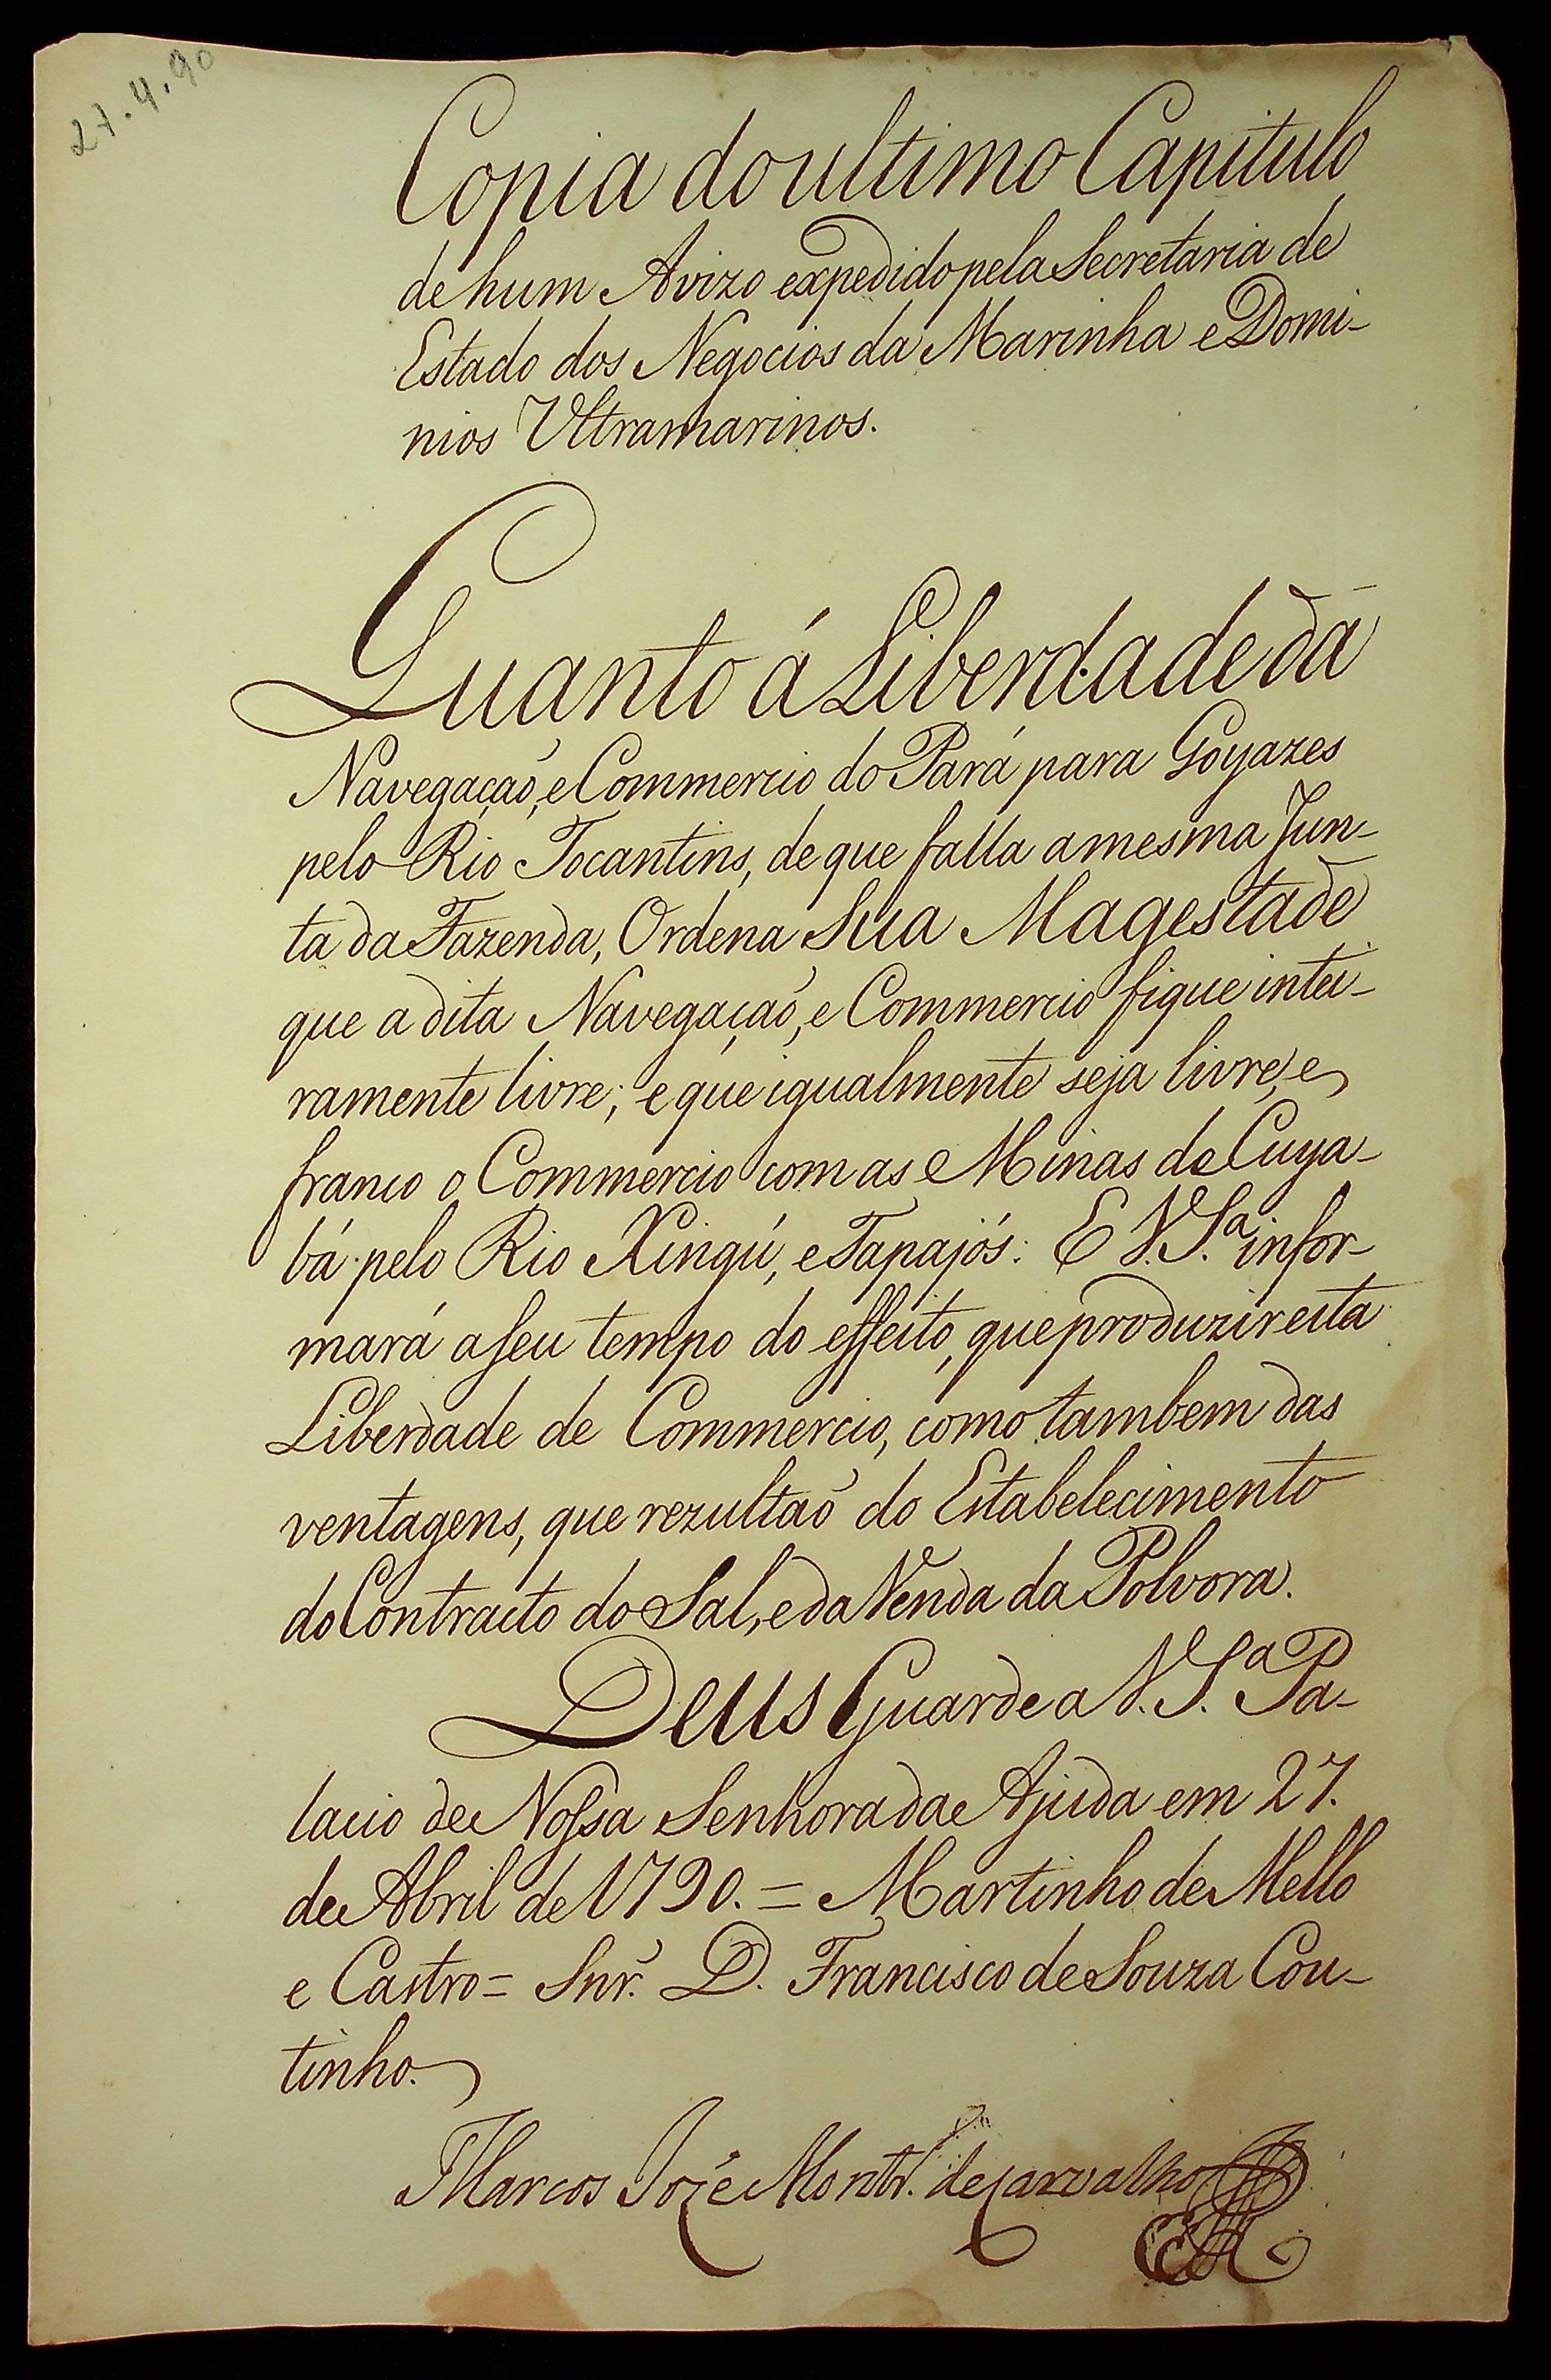 27.4.90
Copia do ultimo Capitulo
de hum Avizo expedido pela Secretaria de
Estado dos Negocios da Marinha e Domi-
nios Ultramarinos.
Quanto á Liberdade da
Navegaçaõ, e Commercio do Pará para Goyazes
pelo Rio Tocantins, de que falla a mesma Jun-
ta da Fazenda, Ordena Sua Magestade
que a dita Navegaçaõ, e Commercio fique intei-
ramente livre; e que igualmente seja livre, e
franco o Commercio com as Minas do Cuya-
bá pelo Rio Xingú, e Tapajós: E V. S.ª infor-
mará a seu tempo do effeito, que produzir esta
Liberdade de Commercio, como tambem das
ventagens, que rezultaõ do Estabelecimento
do Contracto do Sal, e da Venda da Polvora.
Deus Guarde a V. S.ª Pa-
lacio de Nossa Senhora da Ajuda em 27.
de Abril de 1790. = Martinho de Mello
e Castro = Snr. D. Francisco de Souza Cou-
tinho.
Marcos Jozé Montr. de Carvalho